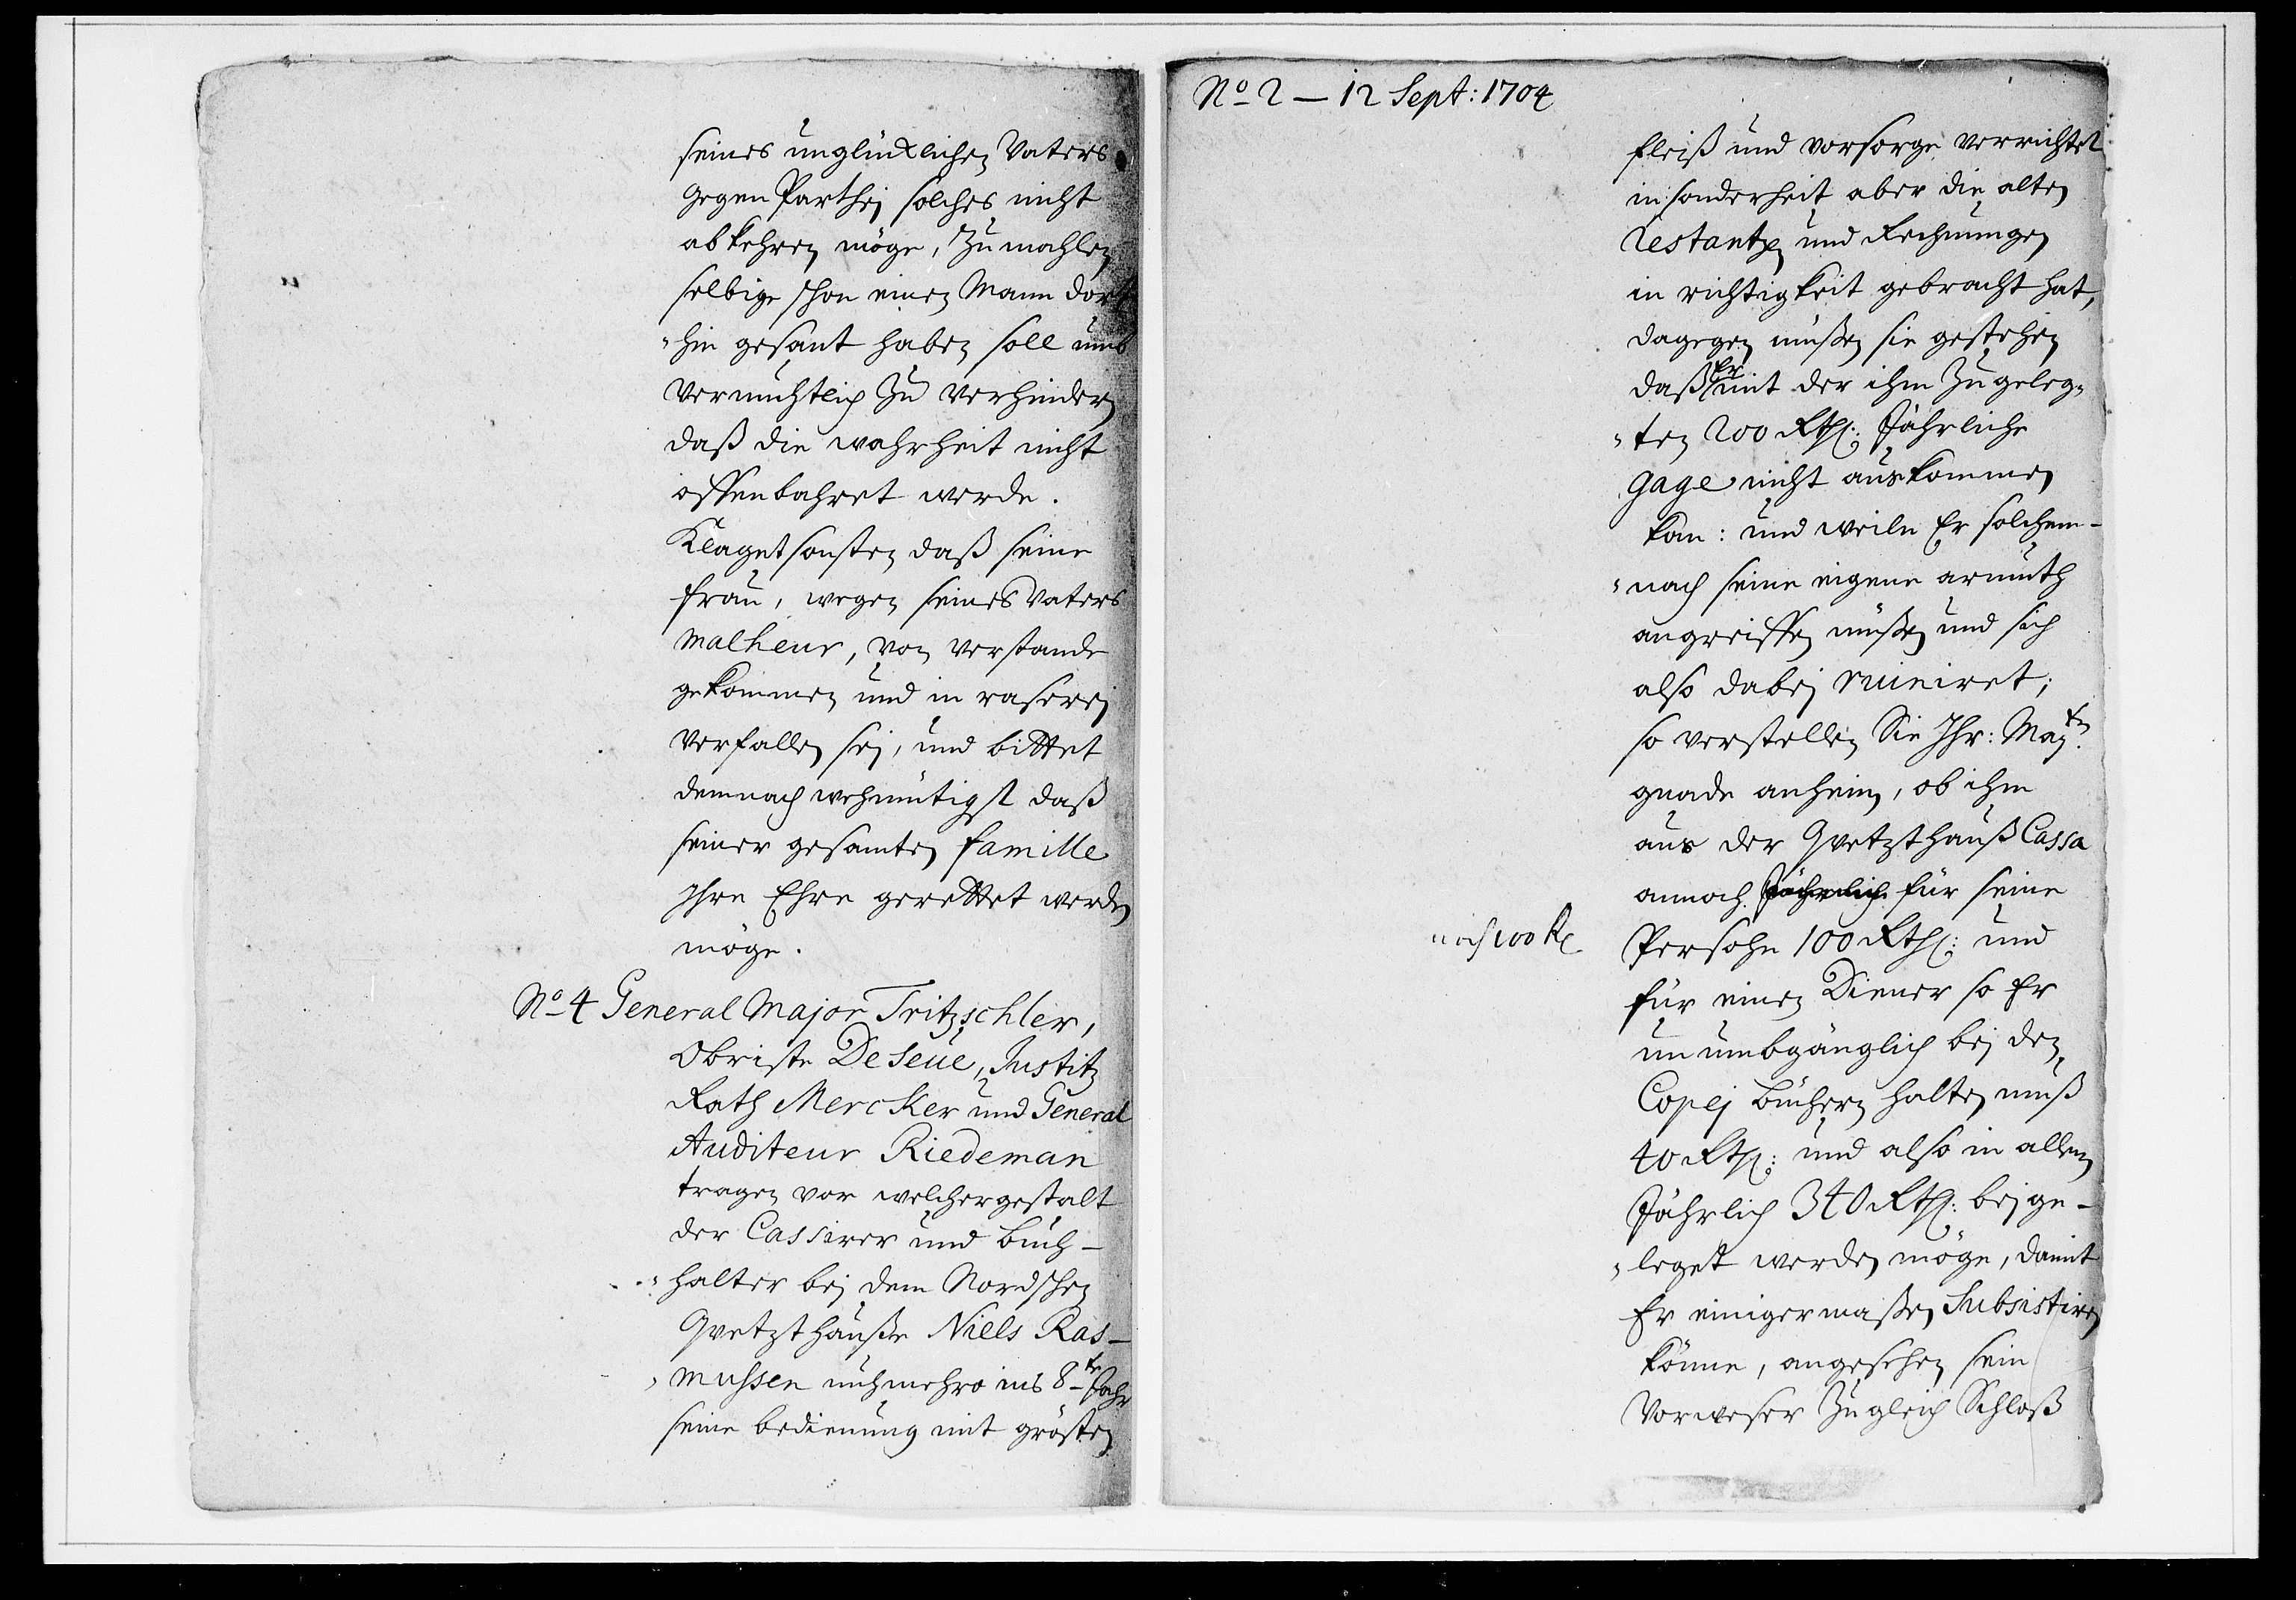 seines unglücklichen Vaters
gegen Parthej solches nicht
abkehren möge, Zu mahlen
selbige schon einen Mann dort
"hin gesant haben soll umb
vermuchtlich Zu verhindern
daß die wahrheit nicht
offenbahret werde.
Klaget sonsten daß seine
frau, wegen seines Vaters
malheur, von verstande
gekommen und in raserej
verfallen sej, und bittet
demnach wehmütigst daß
seiner gesamten famille
Ihre Ehre gerettet werden
möge.
No 4 General Major Tritzschler,
Obriste De Seue, Justitz
Rath Mercker und General
Auditeur Riedeman
tragen vor welchergestalt
der Cassirer und Buch-
"halter bej dem Nordschen
Qvetzthauße Niels Ras-
"mussen nuhmehro ins 8te Jahr
seine bedienung mit grösten
No 2 - 12 Sept: 1704
fleiß und vorsorge verrichtet
in sonderheit aber die alten
restantzen und Rechnungen
in richtigkeit gebracht hat,
dagegen müßen sie gestehen
daß Er mit der ihm Zu geleg-
"ten 200 Rthl: Jährliche
gage nicht auskommen
kan: und weiln Er solchem-
"nach seine eigene armuth
angreiffen müßen und sich
also dabej ruiniret;
so verstellen Sie Ihr: Majtn.
gnade anheim, ob ihm
aus der Qvetzthauß Cassa
annoch Jährlich für seine
noch 100 Rt
Persohn 100 Rthl: und
für einen Diener so Er
unumbgänglich bej den
Copej Büchern halten muß
40 Rthl: und also in allem
Jährlich 340 Rthl: bejge-
"leget werden möge, damit
Er einigermaßen Subsistiren
könne, angesehen sein
Vorweser Zugleich Schloß